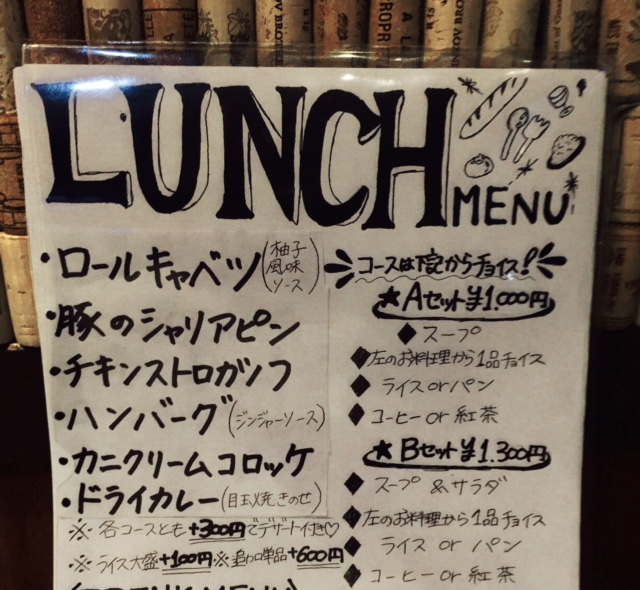 LUNCH
MENU
・ロールキャベツ(柚子風味ソース)
・豚のシャリアピン
・チキンストロガノフ
・ハンバーグ(ジンジャーソース)
・カニクリームコロッケ
・ドライカレー(目玉焼きのせ)
※各コースとも+300円でデザート付き♡
※ライス大盛+100円※追加単品+600円
コースは下記からチョイス!
★Aセット¥1.000円
◆スープ
◆左のお料理から1品チョイス
◆ライス or パン
◆コーヒー or 紅茶
★Bセット¥1.300円
◆スープ & サラダ
◆左のお料理から1品チョイス
◆ライス or パン
◆コーヒー or 紅茶